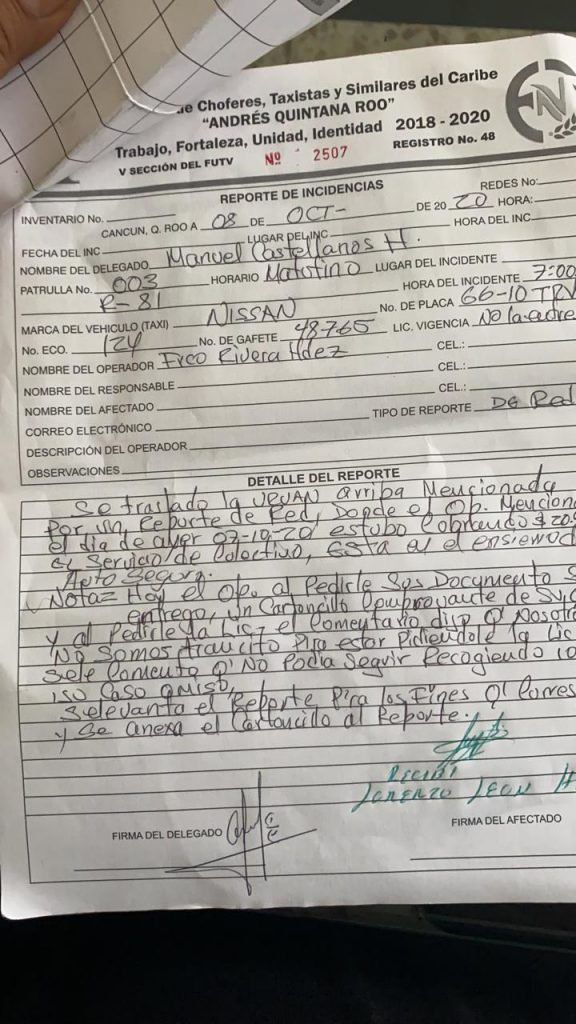 de Choferes, Taxistas y Similares del Caribe
"ANDRÉS QUINTANA ROO"
Trabajo, Fortaleza, Unidad, Identidad 2018 - 2020
V SECCIÓN DEL FUTV Nº 2507 REGISTRO No. 48
REPORTE DE INCIDENCIAS
INVENTARIO No. REDES No:
CANCUN, Q. ROO A 08 DE OCT- DE 2020 HORA:
FECHA DEL INC LUGAR DEL INC. HORA DEL INC
NOMBRE DEL DELEGADO Manuel Castellanos H.
PATRULLA No. 003 HORARIO Matutino LUGAR DEL INCIDENTE
R-81 HORA DEL INCIDENTE 7:00
MARCA DEL VEHICULO (TAXI) NISSAN No. DE PLACA 66-10 TRV
No. ECO. 124 No. DE GAFETE 48765 LIC. VIGENCIA No la
NOMBRE DEL OPERADOR Frco Rivera Hdez CEL.:
NOMBRE DEL RESPONSABLE CEL.:
NOMBRE DEL AFECTADO CEL.:
CORREO ELECTRÓNICO TIPO DE REPORTE DE Red
DESCRIPCIÓN DEL OPERADOR
OBSERVACIONES
DETALLE DEL REPORTE
Se traslado la URVAN arriba Mencionada
Por un Reporte de Red, Donde el Op. Mencion
el dia de ayer 07-10-20 estubo Cobrando $20.
el Servicio de Colectivo, Esta en el
Auto Seguro.
Nota: Hoy el Op. al Pedirle Sus Documento S
entrego, un Cartoncillo Comprovante de
y al Pedirle la Lic. el Comentario dijo Q' Nosotro
No Somos transito P/ra estar Pidiendole la Lic
Sele Comento Q' No Podia Seguir Recogiendo
iso Caso omiso,
Se levanta el Reporte P/ra los Fines Q' Corres
y Se anexa el Cartoncillo al Reporte.
RECIBÍ
LORENZO LEAN H
FIRMA DEL DELEGADO FIRMA DEL AFECTADO